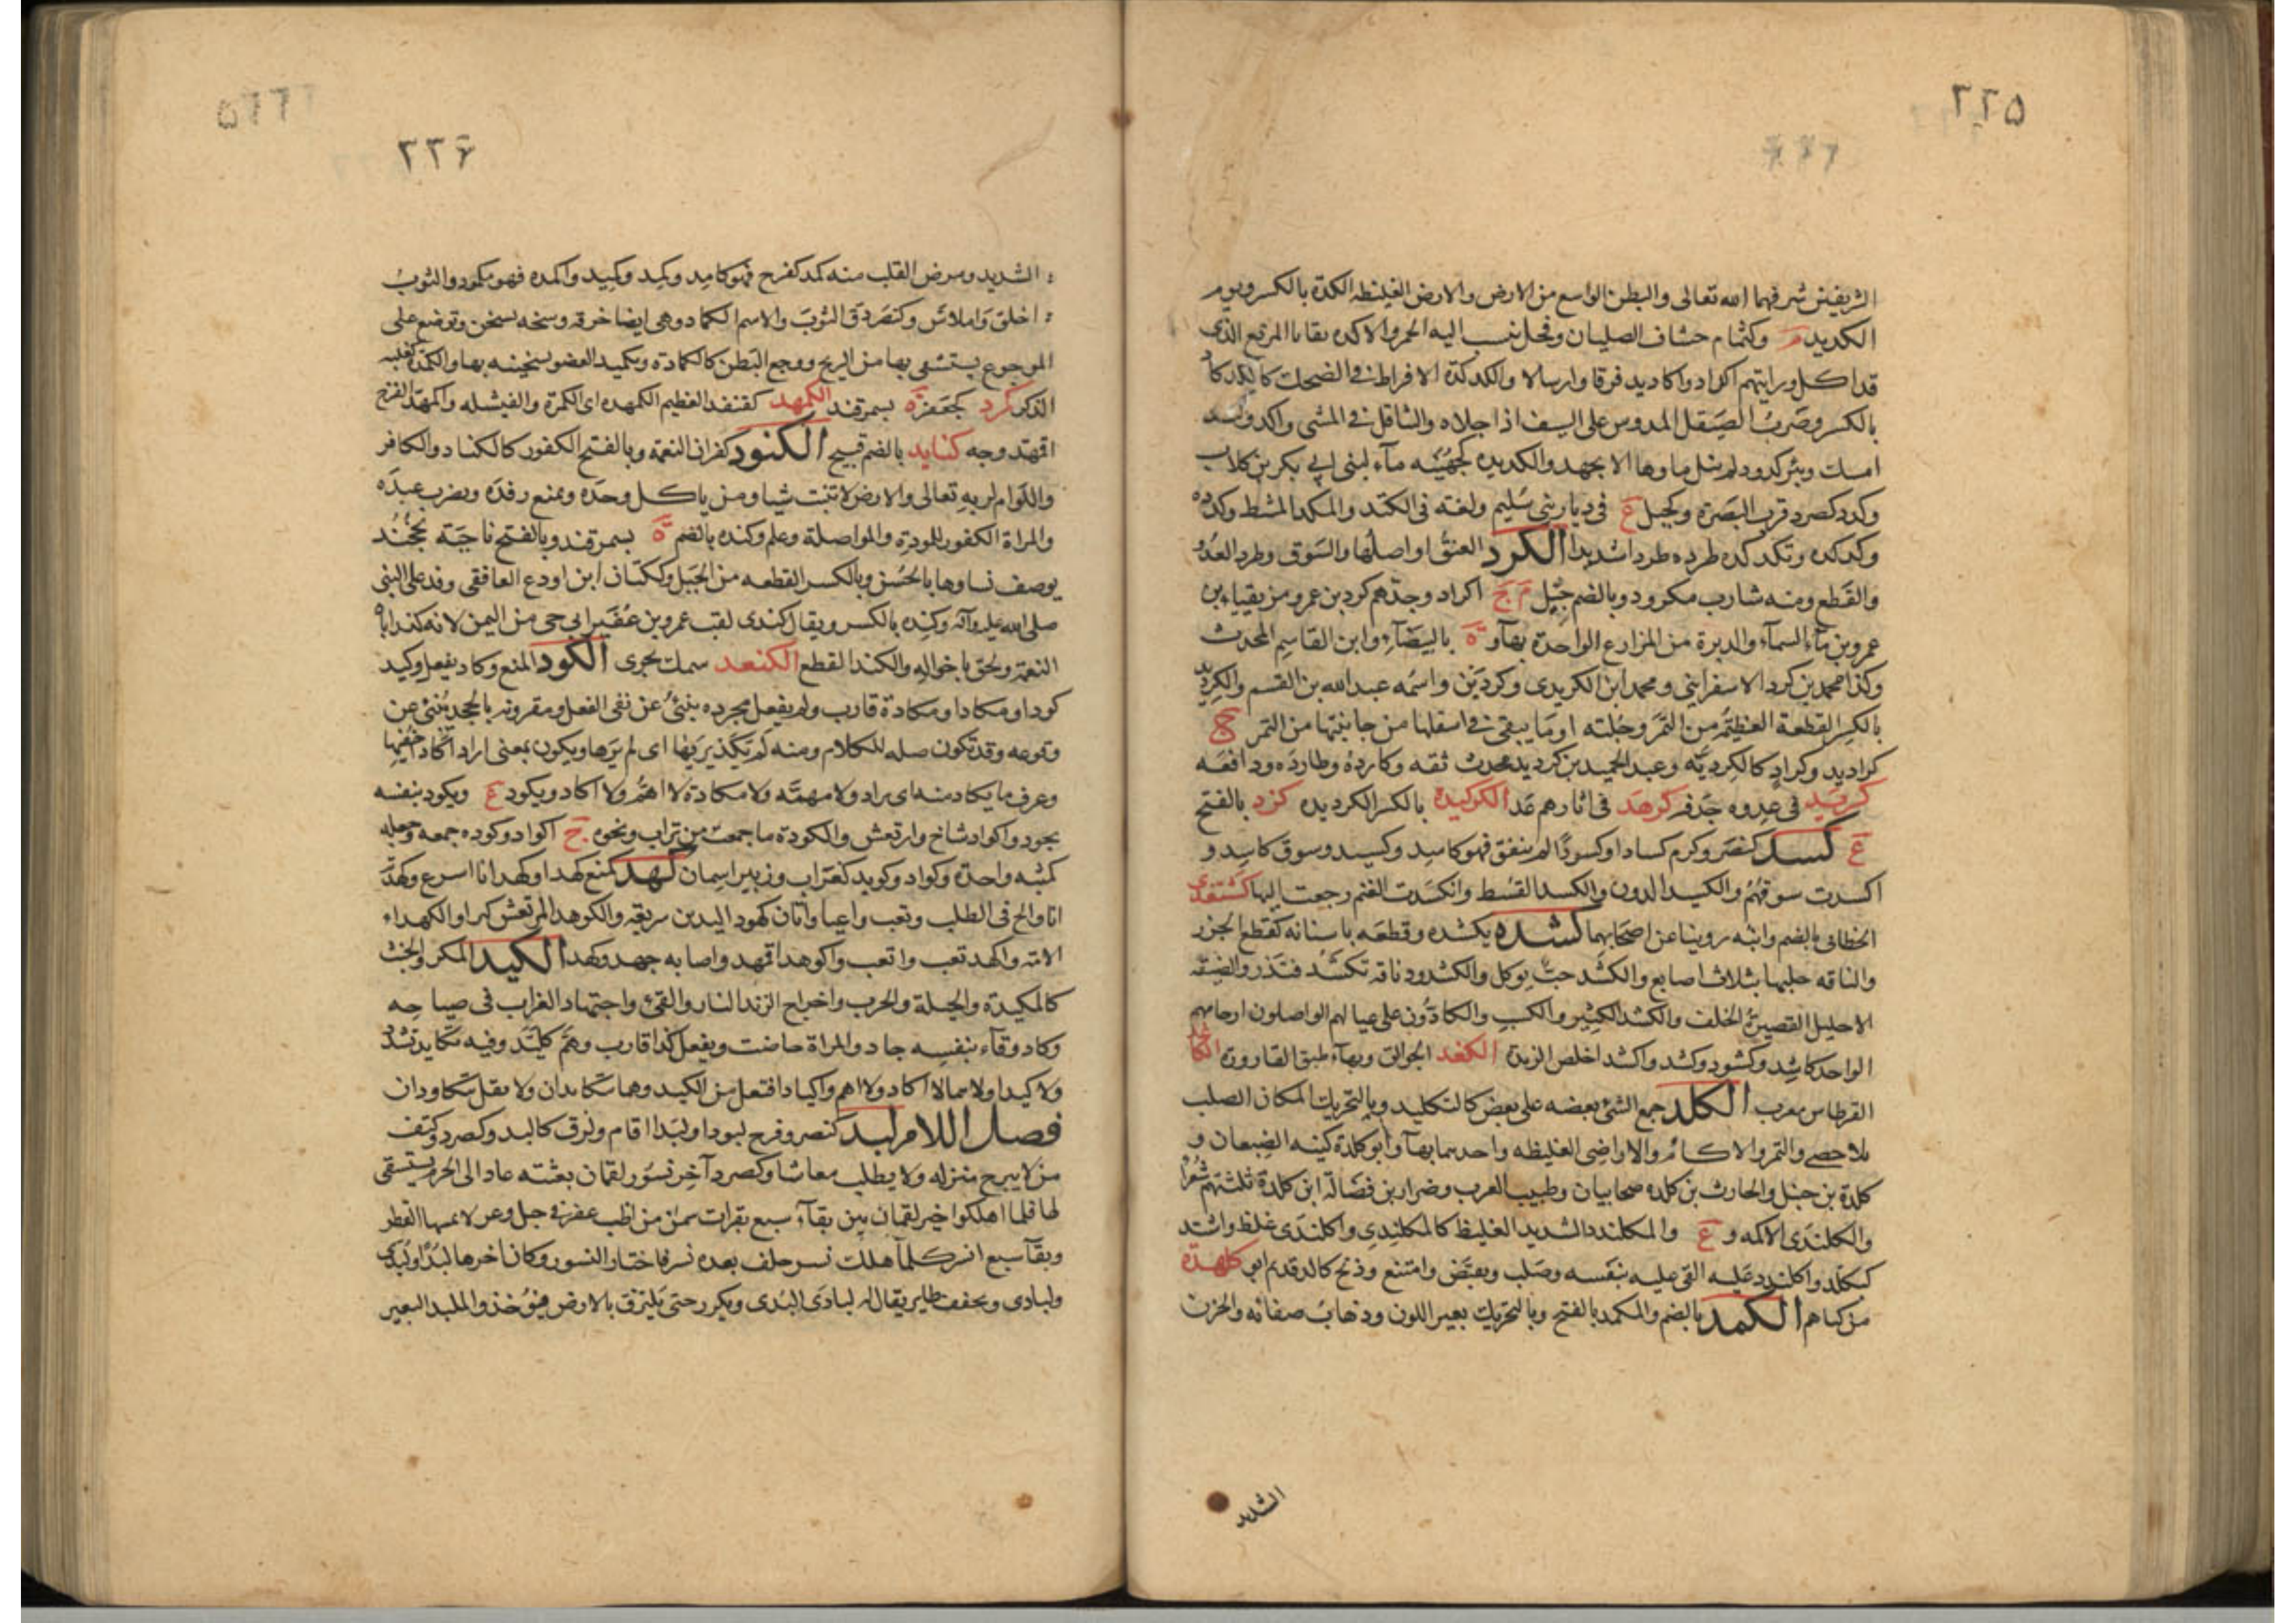 ٢٢٥
الشريفين شرفهما الله تعالى والبطن الواسع من الارض والارض الغليظه الكدة بالكسر ويوم
الكديد م وكثمام حشاف الصليان وفحل ينسب اليه الحمر والاكدة بقايا المرتع الذى
قد اكل ورايتهم اكدادا واكاديد فرقا وارسالا والكدكدة الافراط فى الضحك كالكدكاد
بالكسر وضرب الصيقل المدوس على السيف اذا جلاه والتثاقل فى المشى واكد
امسك وبئر كدود لم ينل ماوها الا بجهد والكديده كجهينه مآء لبنى ابى بكر بن كلاب
وكدد كصرد قرب البصرة وكجبل ع فى ديار بنى سليم ولغته فى الكتد والمكد المشط وكدده
وكدكده وتكدكده طرده طردا شديدا الكرد العنق او اصلها والسوق وطرد العدو
والقطع ومنه شارب مكرود وبالضم جيل م ج اكراد وجدهم كرد بن عمرو مزيقياء بن
عمرو بن مآء السمآء والدبرة من المزارع الواحدة بهآء و ة بالبيضآء وابن القاسم المحدث
وكذا محمد بن كرد الاسفراينى ومحمد ابن الكريدى وكردين واسمه عبد الله بن القسم والكرديد
بالكسر القطعة العظيمة من التمر وجلته او ما يبقى فى اسفلها من جانبتيها من التمر ج
كراديد وكراد كالكرديه وعبد الحميد بن كرديد محدث ثقه وكارده وطارده ودافعه
كربد فى عدوه جد فر كرهد فى اثارهم عدا الكركيدة بالكسر الكرديده كزد بالفتح
ع كسد كنصر وكرم كسادا وكسودا لم ينفق فهو كاسد وكسيد وسوق كاسد و
اكسدت سوقهم والكسيد الدون والكسد القسط وانكسدت الغنم رجعت اليها كشتغدى
الخطائى بالضم وابنه روينا عن اصحابهما كشده يكشده وقطعه باسنانه كقطع الجزر
والناقه حلبها بثلاث اصابع والكشد حب يوكل والكشود ناقه تكشد فتدر والضيقه
الاحليل القصيرة الخلف والكشد الكثير والكسب والكادون على عيالهم الواصلون ارحامهم
الواحد كاشد وكشود وكشد واكشد اخلص الزبدة الكغد الجوالق وبهآء طبق القارورة الكاغد
القرطاس معرب الكلد جمع الشئ بعضه على بعض كالتكليد وبالتحريك المكان الصلب
بلا حصى والنمر والاكام والاراضى الغليظه واحدهما بهآء وابو كلدة كنيه الضبعان و
كلدة بن حنبل والحارث بن كلده صحابيان وطبيب العرب وضرار بن فضالة ابن كلدة ثلثتهم شعرا
والكلندى الاكمه و ع والمكلندد الشديد الغليظ كالمكلندى واكلندى غلظ واشتد
كتكلد واكلندد عليه القى عليه نفسه وصلب وتقبض وامتنع وذيخ كالد قديم ابو كلهدة
من كناهم الكمد بالضم والكمد بالفتح وبالتحريك تغير اللون وذهاب صفائه والحزن
الشديد
٢٢٦
الشديد ومرض القلب منه كمد كفرح فهو كامد وكمد وكميد واكمده فهو مكمود والثوب
اخلق واملاس وكنصر دق الثوب والاسم الكماد وهى ايضا خرقه وسخه تسخن وتوضع على
الموجوع يستشفى بها من الريح ووجع البطن كالكمادة وتكميد العضو تسخينه بها والكمدة كغلبه
الذكر كمرد كجعفر ة بسمرقند الكمهد كقنفذ العظيم الكمهده اى الكمرة والفيشله واكمهد الفرخ
اقمهد وجه كنابد بالضم قبيح الكنود كفران النعمة وبالفتح الكفور كالكناد والكافر
واللوام لربه تعالى والارض لا تنبت شيا ومن ياكل وحده ويمنع رفده ويضرب عبده
والمراة الكفور للمودة والمواصلة وعلم وكنده بالضم ة بسمرقند وبالفتح ناحيه بخجند
يوصف نساوها بالحسن وبالكسر القطعه من الجبل وككتان ابن اودع الغافقى وفد على النبى
صلى الله عليه وآله وكنده بالكسر ويقال كندى لقب عمرو بن عفير ابى حى من اليمن لانه كند اباه
النعمة ولحق باخواله والكند القطع الكنعد سمك بحرى الكود المنع وكاد يفعل وكيد
كودا ومكادا ومكادة قارب ولم يفعل مجرده ينبئ عن نفى الفعل ومقرونه بالجحد ينبئ عن
وقوعه وقد تكون صله للكلام ومنه لم يكد يريها اى لم يرها ويكون بمعنى اراد اكاد اخفيها
وعرف ما يكاد منه اى يراد ولا مهمة ولا مكادة لا اهم ولا اكاد ويكود ع ويكود بنفسه
يجود واكواد شاخ وارتعش والكودة ما جمعت من تراب ونحوه ج اكواد وكوده جمعه وجعله
كثبه واحدة وكواد وكويد كغراب وزبير اسمان كهد كمنع كهدا وكهدانا اسرع وكهد
انا والح فى الطلب وتعب واعيا واتان كهود اليدين سريعة والكوهد المرتعش كبرا والكهداء
الامة واكهد تعب واتعب واكوهد اقمهد واصابه جهد وكهد الكيد المكر والخبث
كالمكيدة والحيلة والحرب واخراج الزند النار والقئ واجتهاد الغراب فى صياحه
وكاد وقآء بنفسه جاد والمراة حاضت ويفعل كذا قارب وهم كليد وفيه تكايد تشدد
ولا كيدا ولا هما لا اكاد ولا اهم واكياد افتعل من الكيد وهما يتكايدان ولا تقل يتكاودان
فصل اللام لبد كنصر وفرح لبودا ولبدا اقام ولزق كالبد وكصرد وكتف
من لا يبرح منزله ولا يطلب معاشا وكصرد آخر نسور لقمان بعثته عاد الى الحرم يستسقى
لها فلما اهلكوا خير لقمان بين بقآء سبع بقرات سمن من اظب عفر فى جبل وعر لا يمسها القطر
وبقآء سبعة انسر كلما هلك نسر خلف بعده نسر فاختار النسور وكان اخرها لبدا ولبدى
ولبادى ويخفف طاير يقال له لبادى البدى ويكرر حتى يلتزق بالارض فيؤخذ والملبد البعير